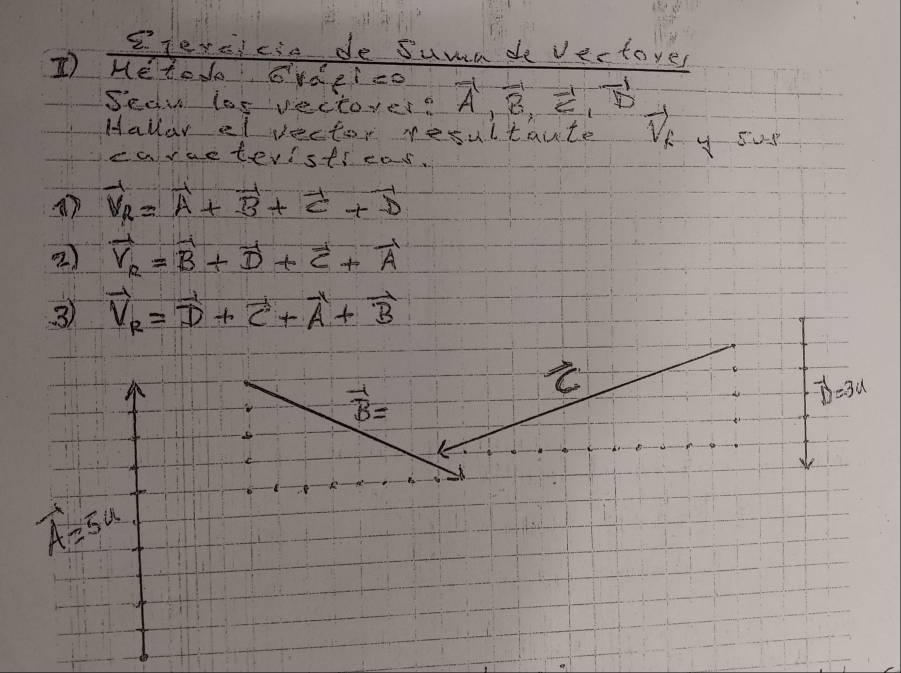 Ejercicio de Suma de Vectores
I) Método Gráfico
Sean los vectores: A, B, C, D
Hallar el vector resultante V_R y sus
características.
1) V_R = A + B + C + D
2) V_R = B + D + C + A
3) V_R = D + C + A + B
C
B=
D=3u
A=5u